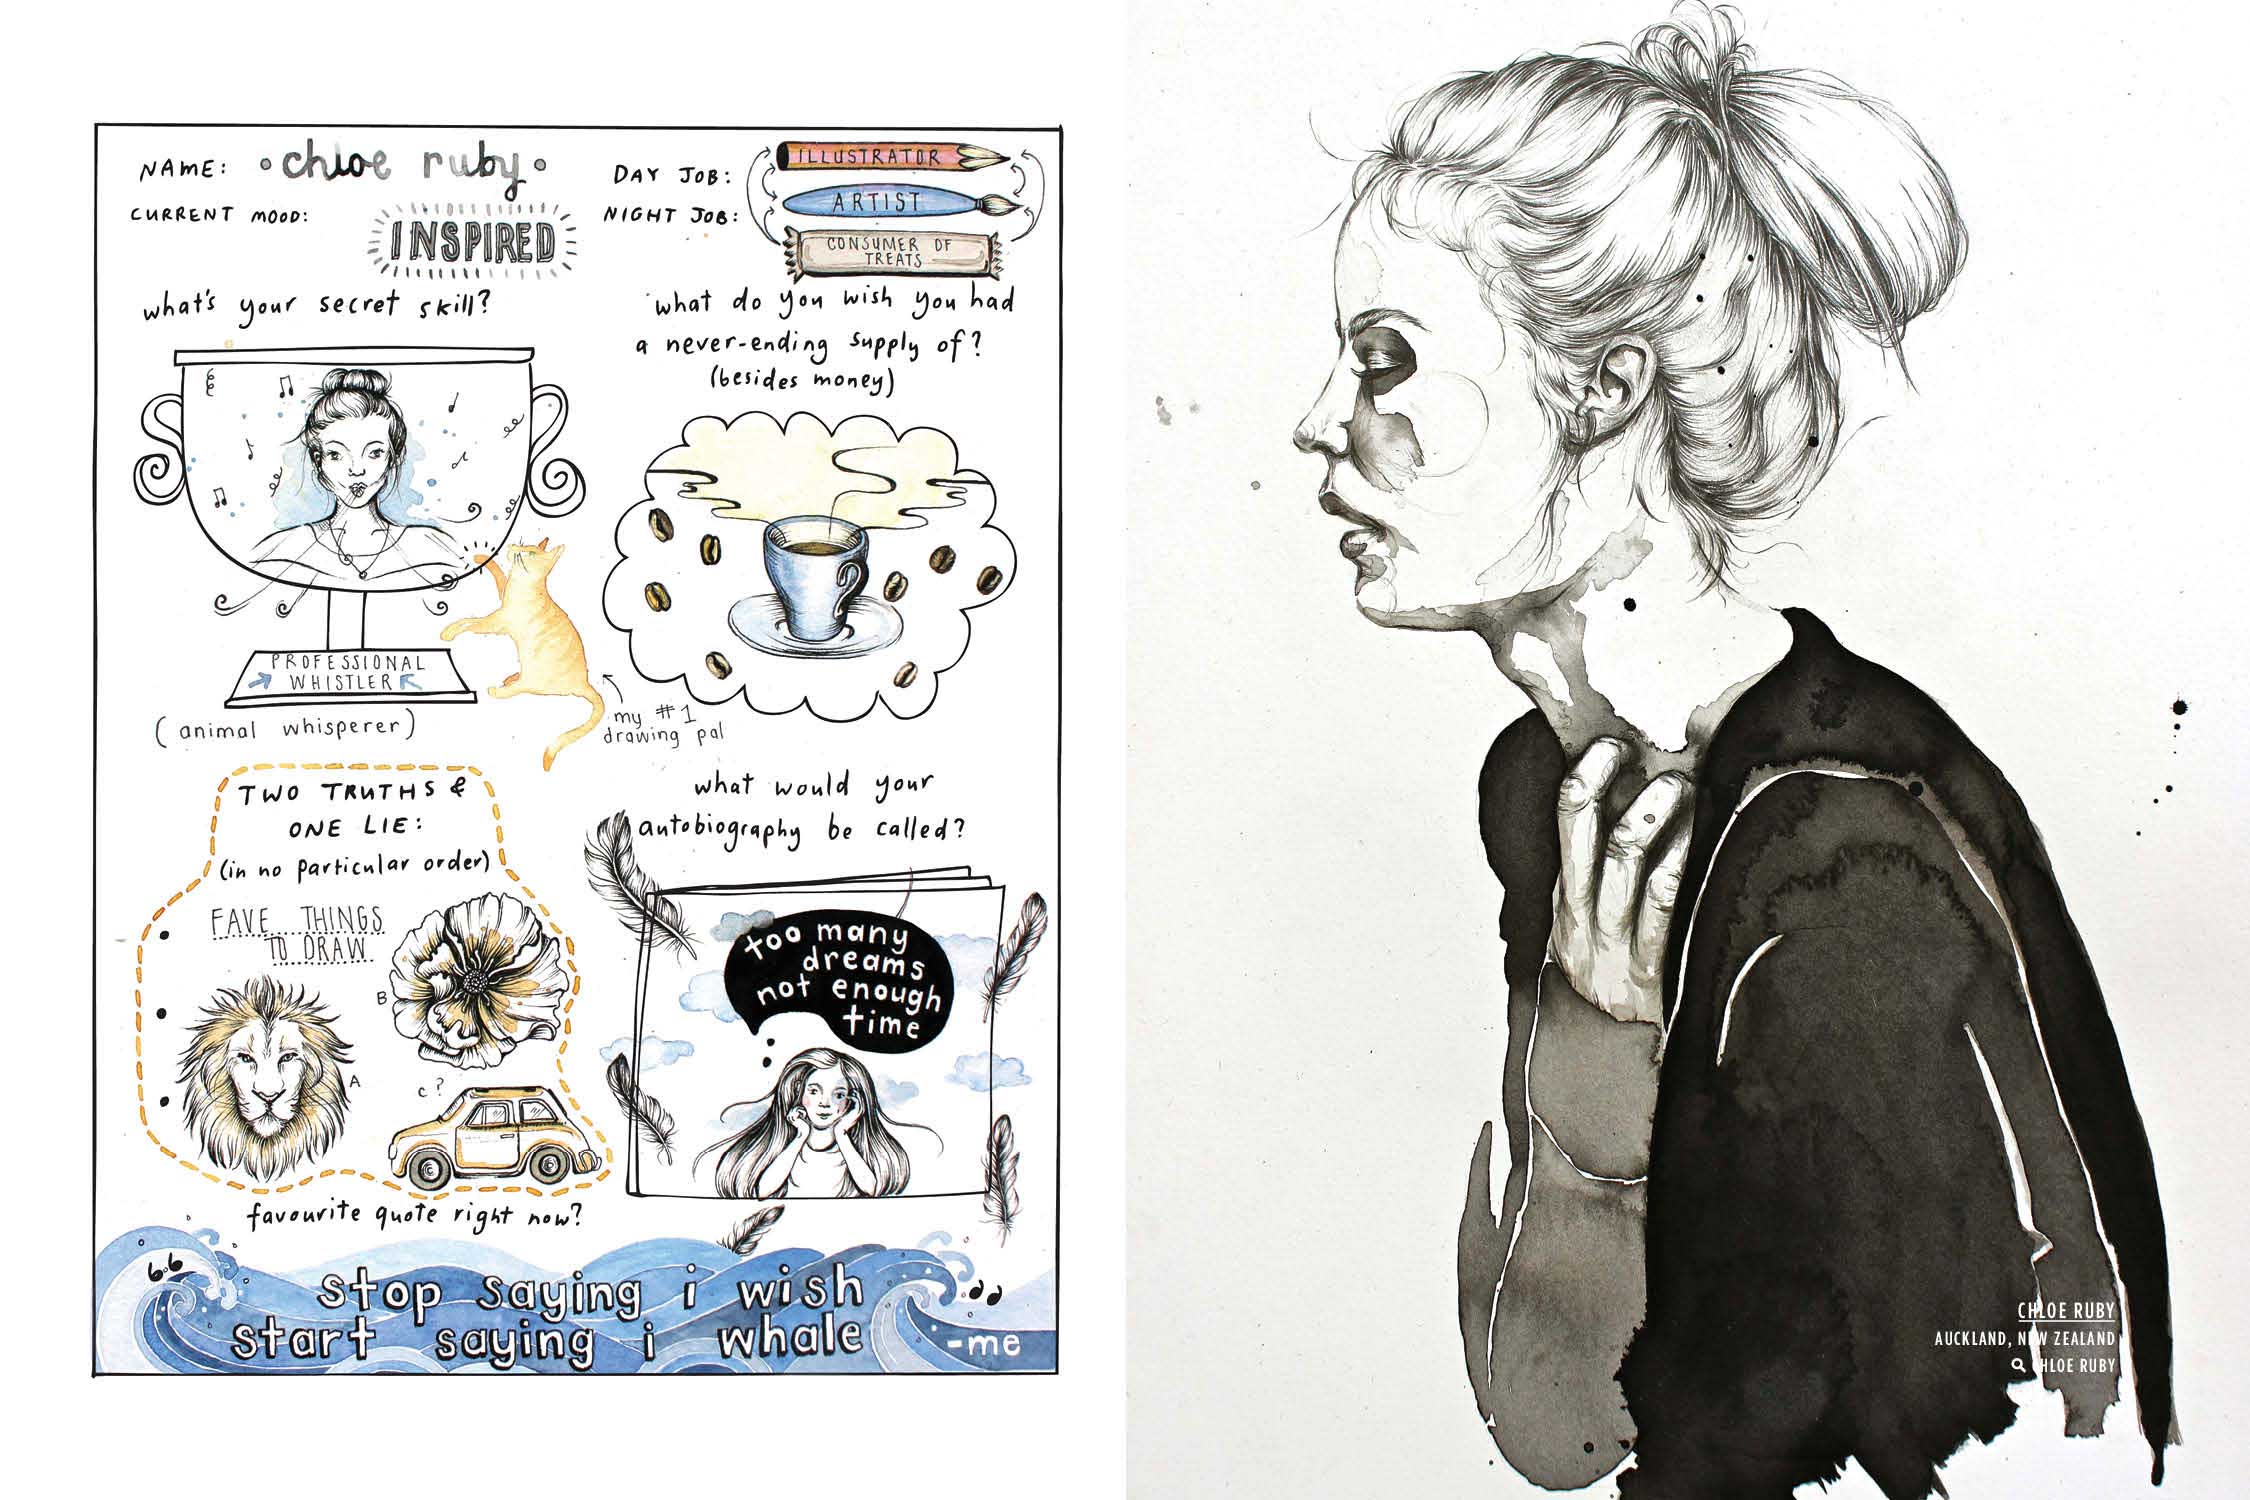 NAME: • chloe ruby •
CURRENT MOOD:
INSPIRED
DAY JOB:
NIGHT JOB:
ILLUSTRATOR
ARTIST
CONSUMER OF
TREATS
what's your secret skill?
PROFESSIONAL
WHISTLER
(animal whisperer)
my #1
drawing pal
what do you wish you had
a never-ending supply of?
(besides money)
TWO TRUTHS &
ONE LIE:
(in no particular order)
FAVE THINGS
TO DRAW
A
B
C?
what would your
autobiography be called?
too many
dreams
not enough
time
favourite quote right now?
“stop saying i wish
start saying i whale”
-me
CHLOE RUBY
AUCKLAND, NEW ZEALAND
CHLOE RUBY